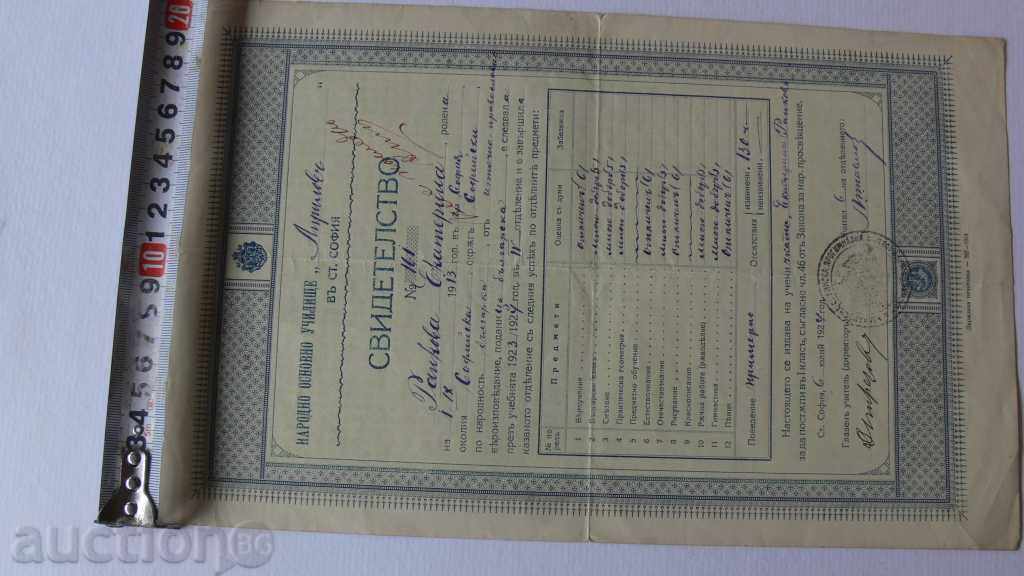 НАРОДНО ОСНОВНО УЧИЛИЩЕ „Априловъ“
ВЪ СТ. СОФИЯ
СВИДЕТЕЛСТВО
№ 101
Ранкова Екатерина, родена
на 1 IX 1913 год. въ гр. София,
околия Софийска окрѫгъ Софийски
по народность българка, отъ източно-православно
вѣроизповѣдание, поданица българска, е следвала
презъ учебната 1923/1924 год. въ IV отдѣление и е завършила
казаното отдѣление съ следния успѣхъ по отдѣлнитѣ предмети:
№ по редъ
Предмети
Оценка съ думи
Забележка
1 Вѣроучение отличенъ (6)
2 Български езикъ много добъръ
3 Смѣтане много добъръ
4 Практическа геометрия много добъръ
5 Предметно обучение
6 Естествознание отличенъ (6)
7 Отечествознание много добъръ
8 Рисуване отличенъ (6)
9 Краснописание
10 Рѫчна работа (рѫкодѣлие) много добъръ
11 Гимнастика много добъръ
12 Пѣние отличенъ (6)
Поведение примерно
Отсѫствия извинени 130 ч.
неизвинени
Настоящето се издава на ученичката Екатерина Ранкова
за да постѫпи въ I класъ, съгласно чл. 46 отъ Закона за нар. просвѣщение.
Ст. София, 6 юний 1924 год.
Главенъ учитель (директоръ):
6 отдѣлението:
20
9
8
7
6
5
4
3
2
1
10
9
8
7
6
5
4
3
auction BG